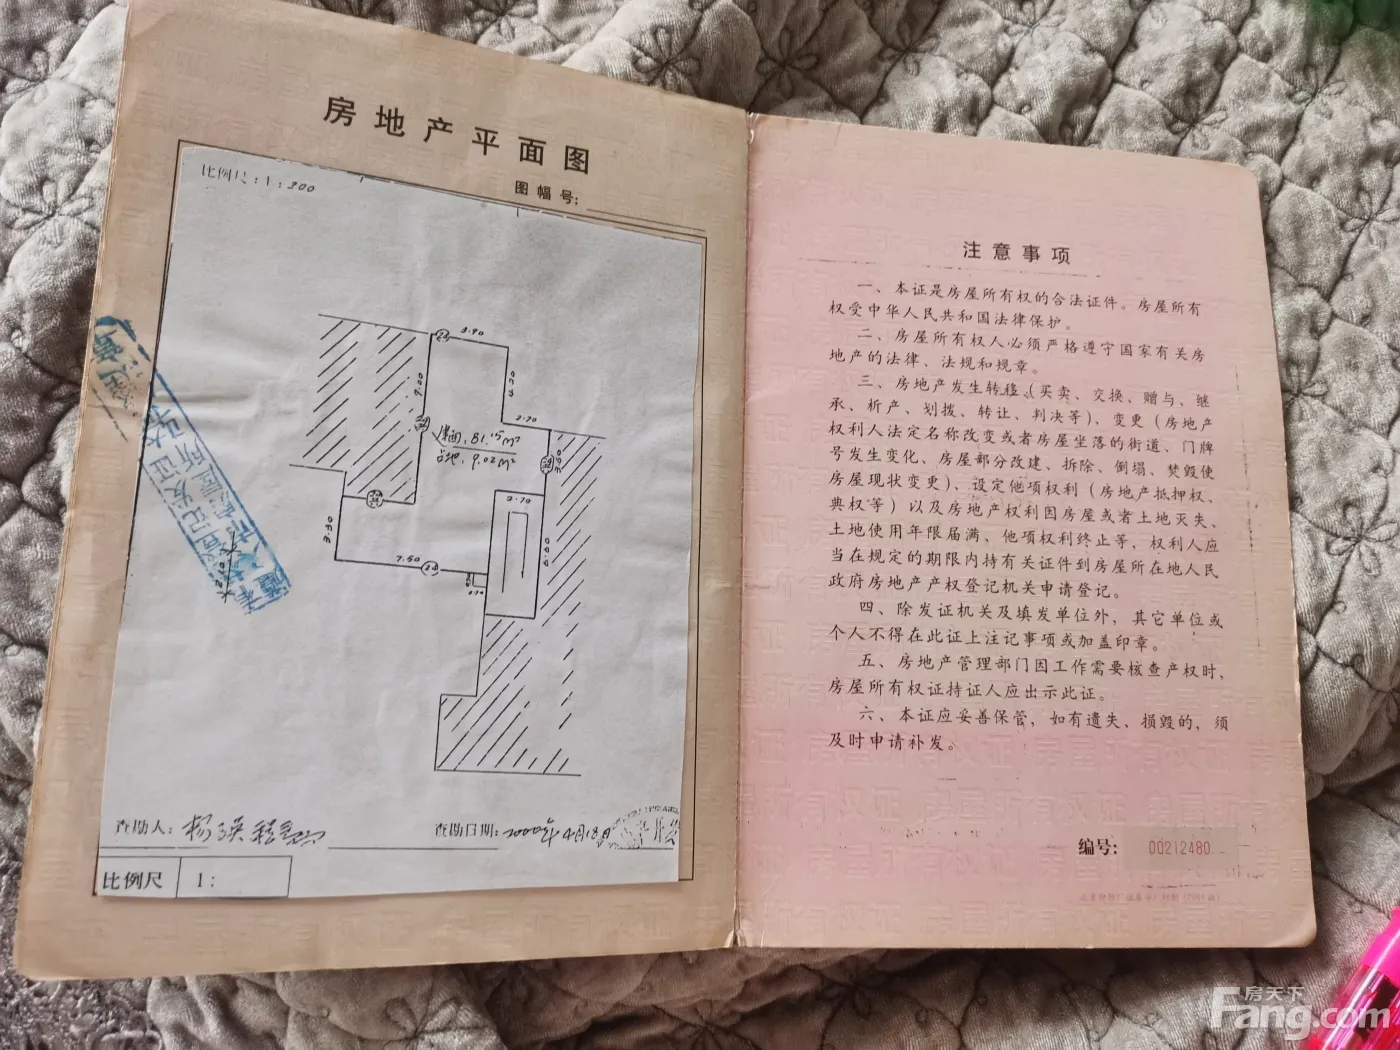 房地产平面图
图幅号:
比例尺:1:300
3.90
24
7.00
4.30
2.70
建面:81.15m²
占地:9.02m²
2.70
3.30
7.50
24
查勘人:
查勘日期:2000年4月18日
比例尺 1:
注意事项
一、本证是房屋所有权的合法证件。房屋所有
权受中华人民共和国法律保护。
二、房屋所有权人必须严格遵守国家有关房
地产的法律、法规和规章。
三、房地产发生转移(买卖、交换、赠与、继
承、析产、划拨、转让、判决等)、变更(房地产
权利人法定名称改变或者房屋坐落的街道、门牌
号发生变化、房屋部分改建、拆除、倒塌、焚毁使
房屋现状变更)、设定他项权利(房地产抵押权、
典权等)以及房地产权利因房屋或者土地灭失、
土地使用年限届满、他项权利终止等,权利人应
当在规定的期限内持有关证件到房屋所在地人民
政府房地产产权登记机关申请登记。
四、除发证机关及填发单位外,其它单位或
个人不得在此证上注记事项或加盖印章。
五、房地产管理部门因工作需要核查产权时,
房屋所有权证持证人应出示此证。
六、本证应妥善保管,如有遗失、损毁的,须
及时申请补发。
编号: 00212480
房天下
Fang.com